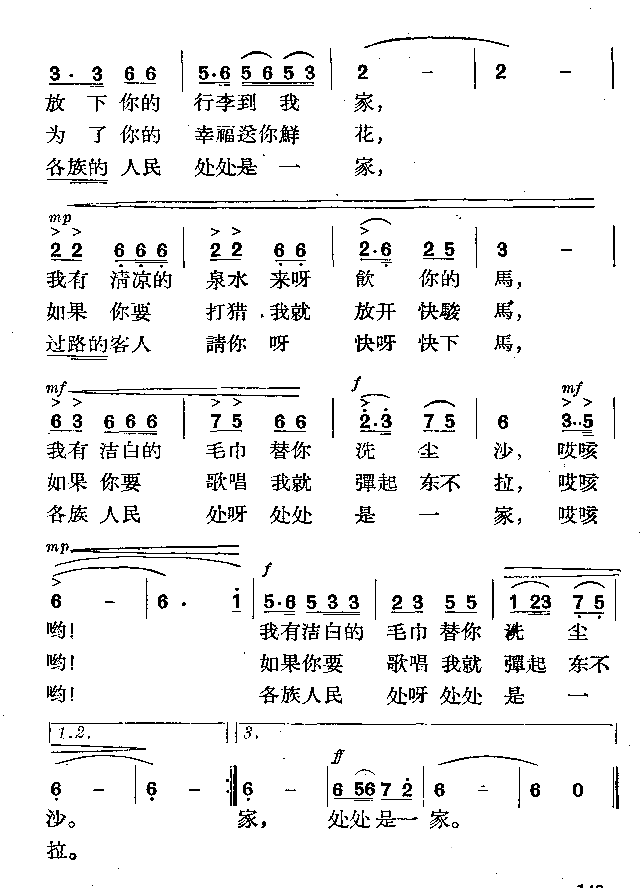 3· 3 6 6 | 5·6 5 6 5 3 | 2 − | 2 −
放下你的 行李到我 家，
为了你的 幸福送你鮮 花，
各族的人民 处处是一 家，
mp
2 2 6 6 6 | 2 2 6 6 | 2·6 2 5 | 3 −
我有清凉的 泉水来呀 飲你的 馬，
如果你要 打猎我就 放开快駿 馬，
过路的客人 請你呀 快呀快下 馬，
mf f mf
6 3 6 6 6 | 7 5 6 6 | 2·3 7 5 | 6 3··5
我有洁白的 毛巾替你 洗尘 沙，哎咳
如果你要 歌唱我就 彈起东不 拉，哎咳
各族人民 处呀处处 是一 家，哎咳
mp f
6 − | 6· 1 | 5·6 5 3 3 | 2 3 5 5 | 1 23 7 5
哟！ 我有洁白的 毛巾替你 洗尘
哟！ 如果你要 歌唱我就 彈起东不
哟！ 各族人民 处呀处处 是一
1.2. 3. ff
6 − | 6 − :‖ 6 − | 6 56 7 2 | 6 − | 6 0 ‖
沙。 家， 处处是一 家。
拉。